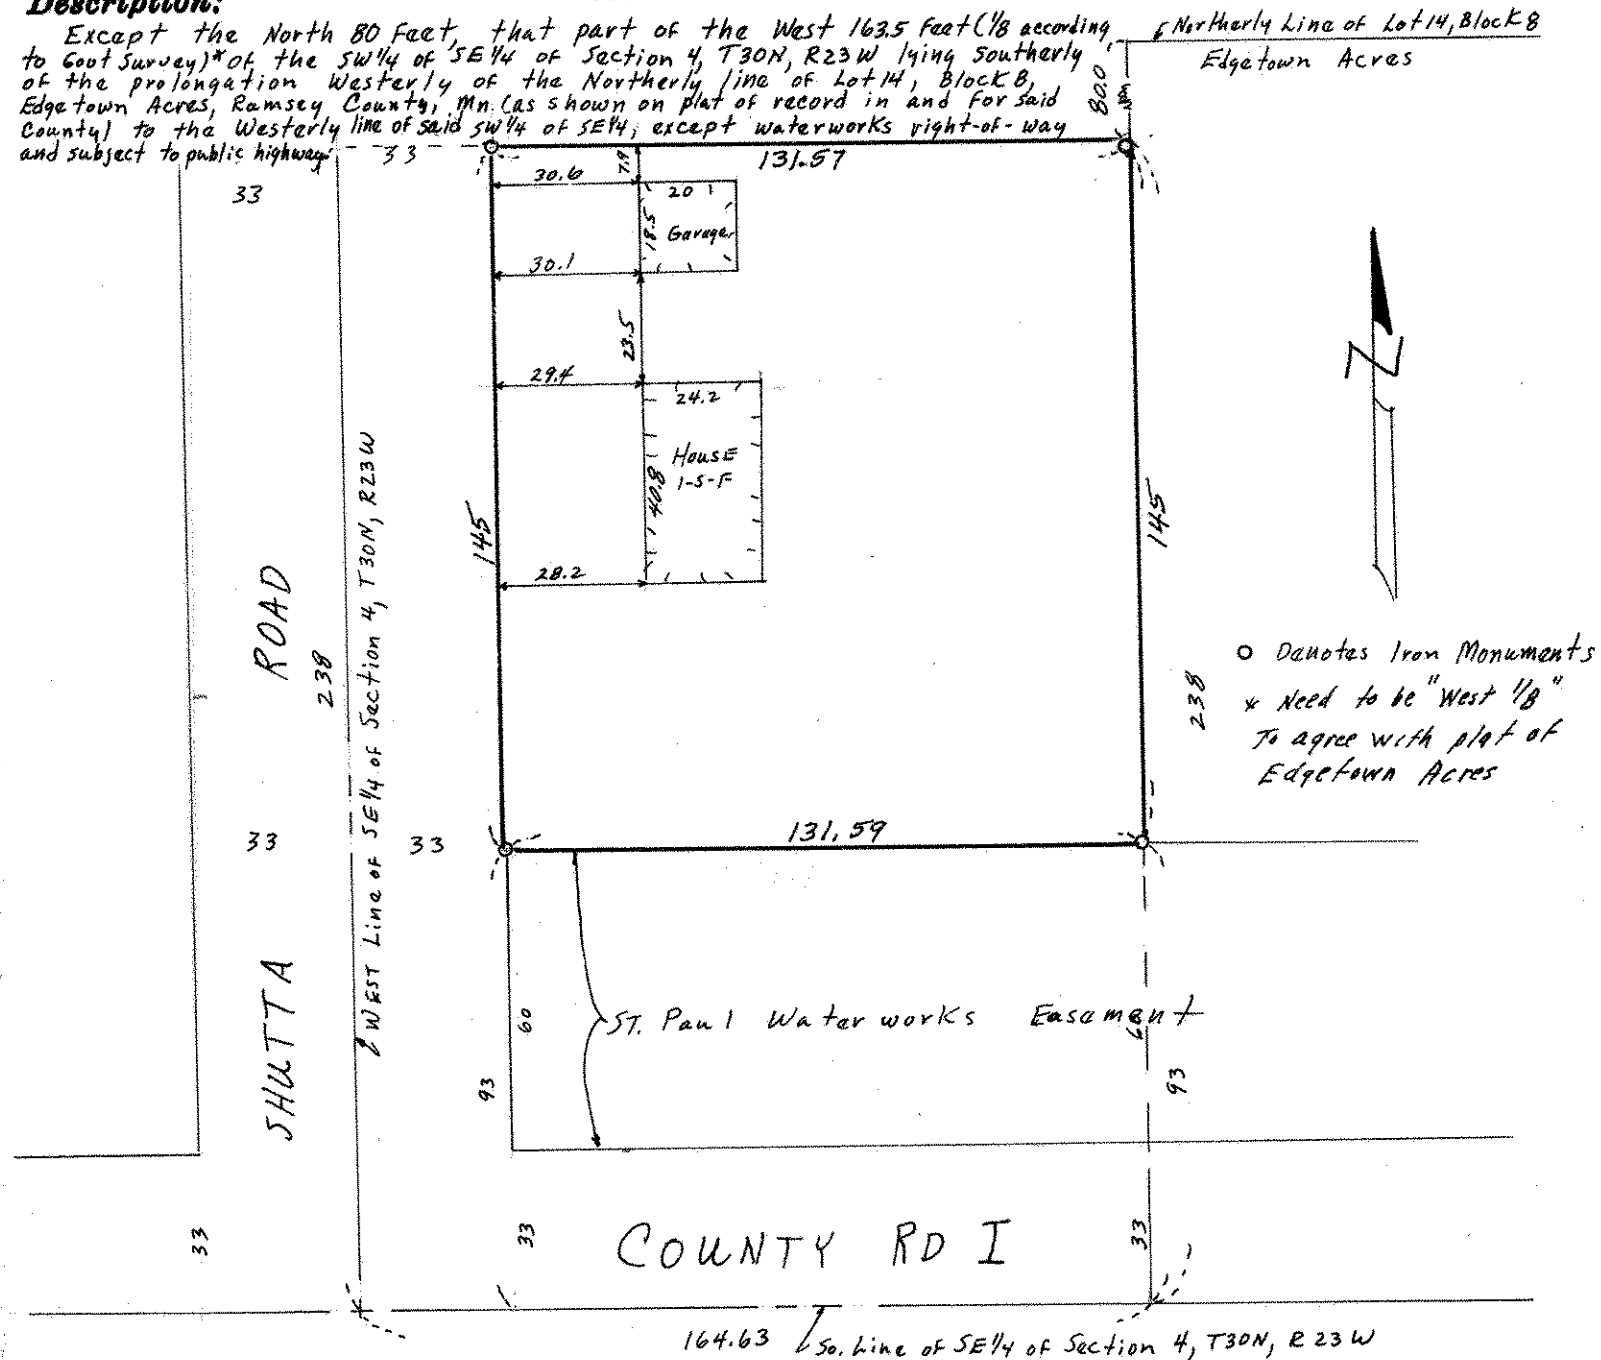 Description:
Except the North 80 Feet, that part of the West 163.5 Feet (1/8 according
to Gout Survey)* of the SW 1/4 of SE 1/4 of Section 4, T30N, R23W lying Southerly
of the prolongation Westerly of the Northerly line of Lot 14, Block 8,
Edgetown Acres, Ramsey County, Mn. (as shown on plat of record in and for said
County) to the Westerly line of said SW 1/4 of SE 1/4, except waterworks right-of-way
and subject to public highway.
Northerly Line of Lot 14, Block 8
Edgetown Acres
80.0
33
33
131.57
30.6
7.9
20
18.5
Garage
30.1
23.5
29.4
24.2
House
1-S-F
40.8
28.2
145
145
WEST Line of SE 1/4 of Section 4, T30N, R23W
SHUTTA ROAD
238
N
o Denotes Iron Monuments
* Need to be "West 1/8"
To agree with plat of
Edgetown Acres
238
33
33
131.59
ST. Paul Water works Easement
60
93
93
33
33
COUNTY RD I
33
164.63
So. Line of SE 1/4 of Section 4, T30N, R23W